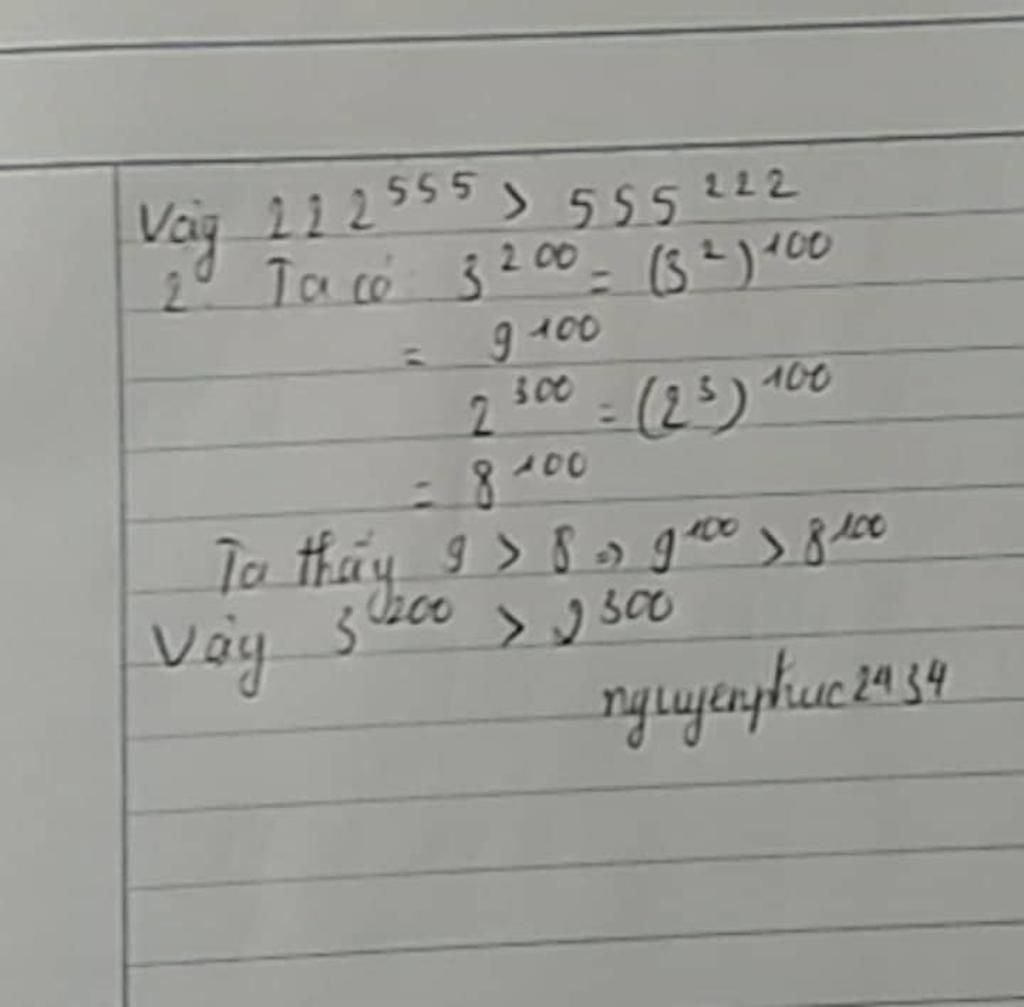 Vậy 222^555 > 555^222
2. Ta có 3^200 = (3^2)^100
= 9^100
2^300 = (2^3)^100
= 8^100
Ta thấy 9 > 8 => 9^100 > 8^100
Vậy 3^200 > 2^300
nguyenphuc2434